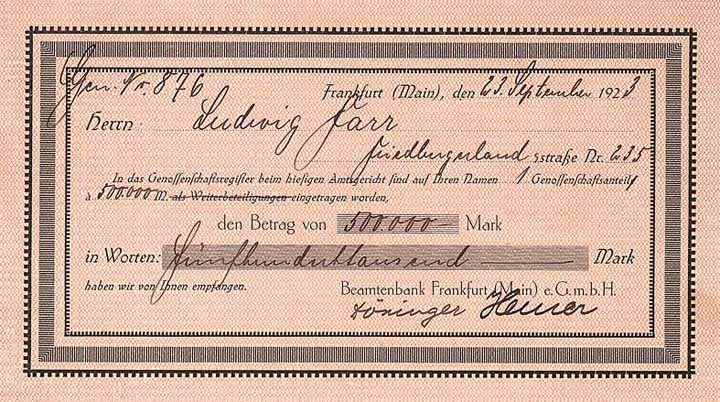 Gen. Nr. 876
Frankfurt (Main), den 23. September 1923
Herrn Ludwig Farr
Friedbergerlandstraße Nr. 235
In das Genossenschaftsregister beim hiesigen Amtsgericht sind auf Ihren Namen 1 Genossenschaftsanteil
à 500.000 M. als Weiterbeteiligungen eingetragen worden,
den Betrag von 500.000 Mark
in Worten: Fünfhunderttausend Mark
haben wir von Ihnen empfangen.
Beamtenbank Frankfurt (Main) e.G.m.b.H.